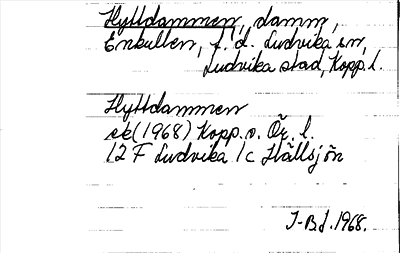 Hyttdammen, damm,
Enkullen, f. d. Ludvika sn,
Ludvika stad, Kopp. l.
Hyttdammen
ek (1968) Kopp. o. Ör. l.
12 F Ludvika 1c Hällsjön
I-Bd. 1968.